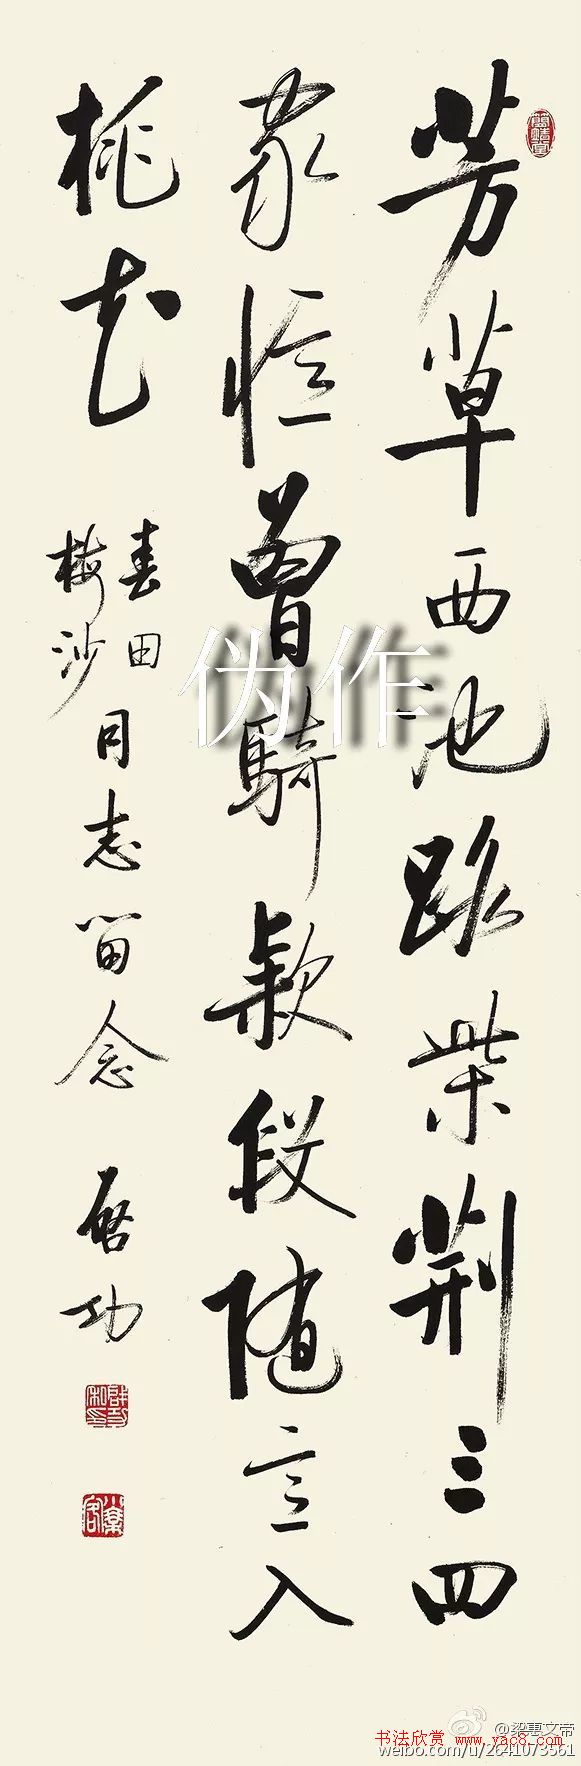 芳草西池路柴荆三四
家忆曾骑款段随意入
桃花
春田
梅沙
同志留念
启功
伪作
@梁惠文帝
书法欣赏 www.yac8.com
weibo.com/u/2641073561